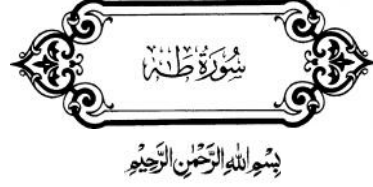 سُورَةُ طٰهٰ
بِسْمِ اللهِ الرَّحْمٰنِ الرَّحِيْمِ